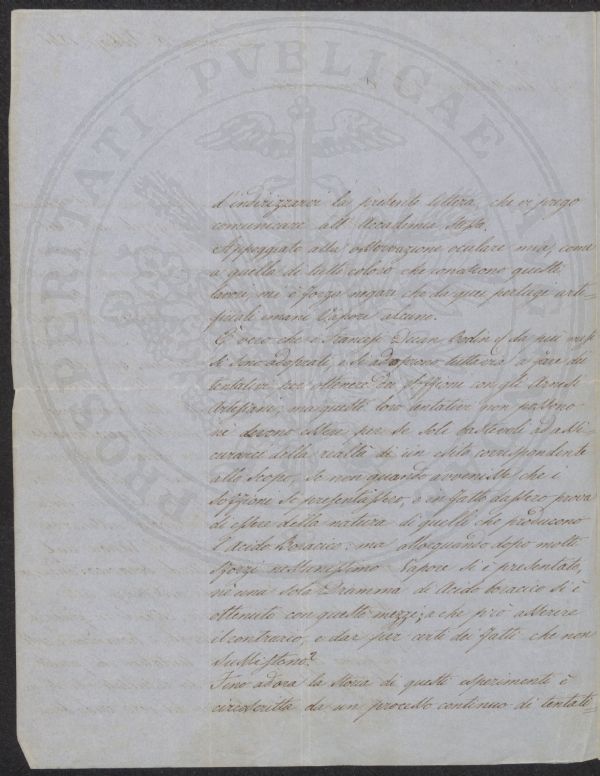 PROSPERITATI PVBLICAE
d'indirizzarvi la presente lettera, che vi prego
comunicare all' Accademia stessa.
Appoggiato alla osservazione oculare mia, come
a quella di tutti coloro che conoscono questi
lavori, mi è forza negare che da quei pertugi arti-
ficiali emani Vapore alcuno.
E' vero che i Francesi da più mesi
si sono adoprati, e si adoprono tuttavia a fare dei
tentativi per ottenere dei Soffioni con gli
Artesiani; ma questi loro tentativi non possono
nè devono essere per se soli bastevoli ad assi-
curarci della realtà di un esito corrispondente
allo scopo, se non quando avvenisse, che i
Soffioni si presentassero, e in fatto dassero prova
di essere della natura di quelli che producono
l'Acido Boracico: ma allorquando dopo molti
sforzi nessunissimo Vapore si è presentato,
nè una sola Dramma di Acido boracico si è
ottenuta con questi mezzi, a che prò asserire
il contrario, e dar per certi dei fatti che non
sussistono?
Fino adora la Storia di questi esperimenti è
circoscritta da un processo continuo di tentati-